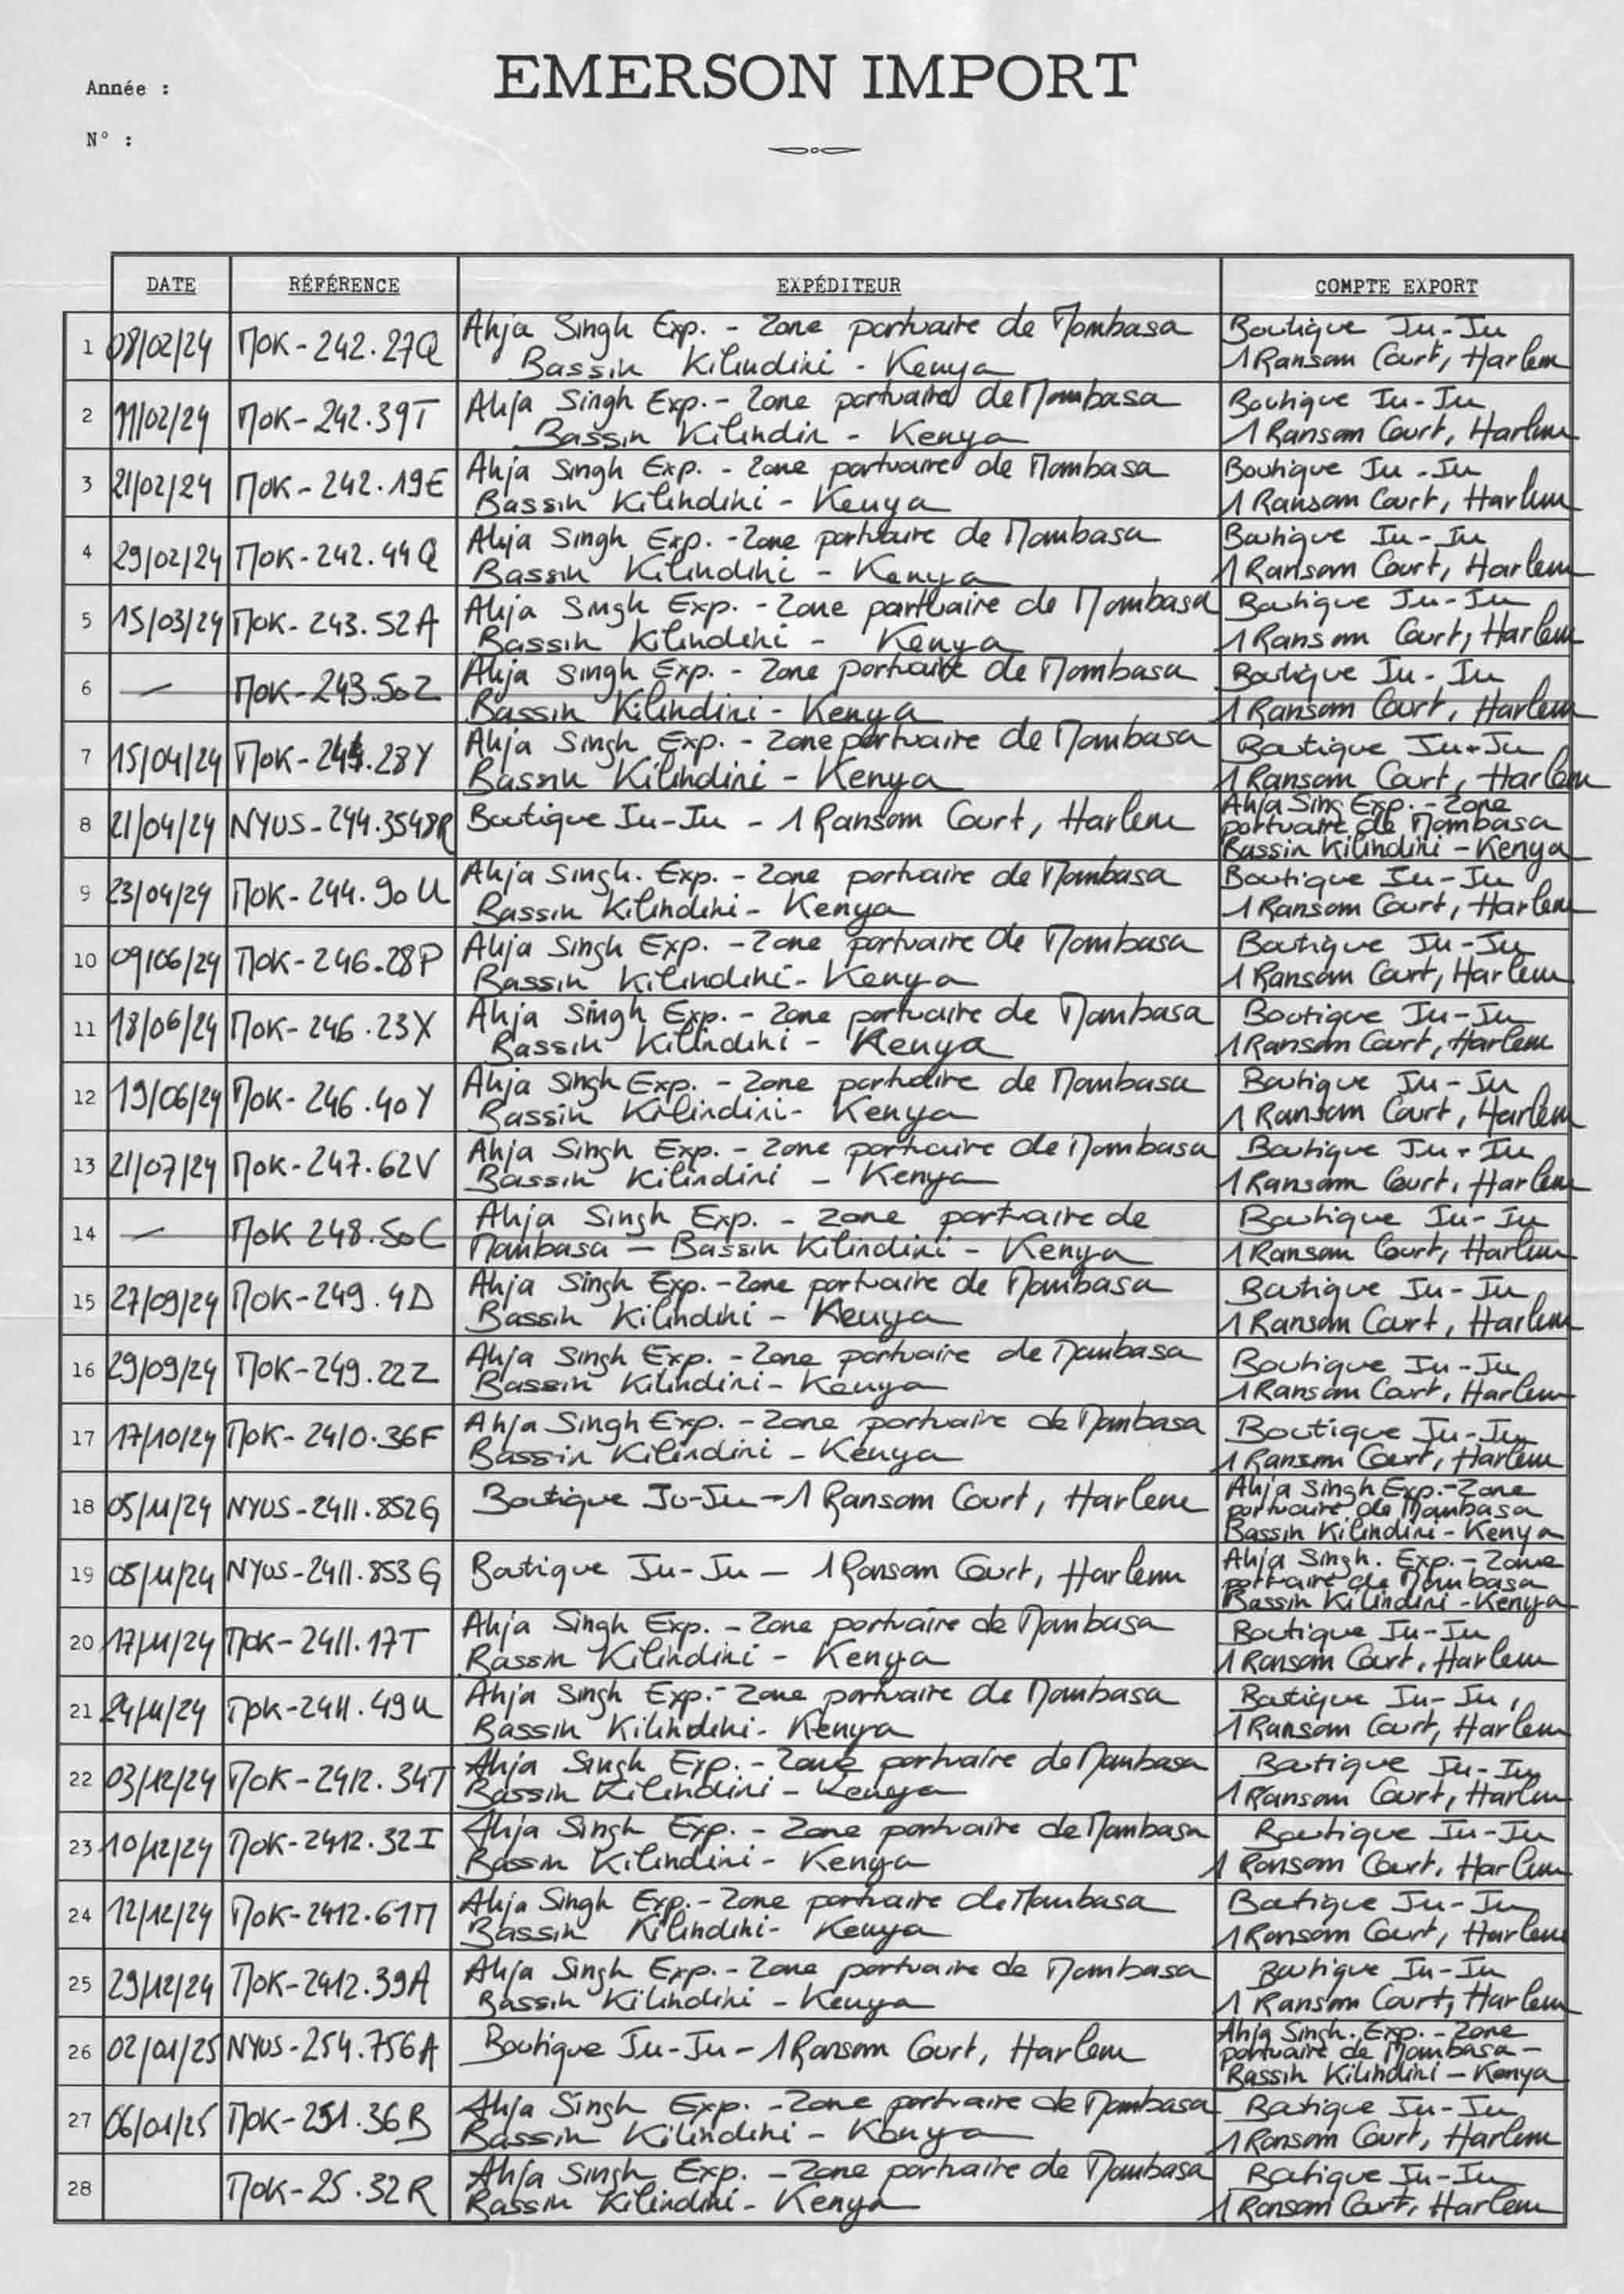 EMERSON IMPORT
Année :
N° :
DATE RÉFÉRENCE EXPÉDITEUR COMPTE EXPORT
1 08/02/24 MOK-242.27Q Ahja Singh Exp. - Zone portuaire de Mombasa Boutique Ju-Ju
Bassin Kilindini - Kenya 1 Ransom Court, Harlem
2 11/02/24 MOK-242.39T Ahja Singh Exp. - Zone portuaire de Mombasa Boutique Ju-Ju
Bassin Kilindin - Kenya 1 Ransom Court, Harlem
3 21/02/24 MOK-242.19E Ahja Singh Exp. - Zone portuaire de Mombasa Boutique Ju-Ju
Bassin Kilindini - Kenya 1 Ransom Court, Harlem
4 29/02/24 MOK-242.44Q Ahja Singh Exp. - Zone portuaire de Mombasa Boutique Ju-Ju
Bassin Kilindini - Kenya 1 Ransom Court, Harlem
5 15/03/24 MOK-243.52A Ahja Singh Exp. - Zone portuaire de Mombasa Boutique Ju-Ju
Bassin Kilindini - Kenya 1 Ransom Court, Harlem
6 — MOK-243.50Z Ahja Singh Exp. - Zone portuaire de Mombasa Boutique Ju-Ju
Bassin Kilindini - Kenya 1 Ransom Court, Harlem
7 15/04/24 MOK-244.28Y Ahja Singh Exp. - Zone portuaire de Mombasa Boutique Ju-Ju
Bassin Kilindini - Kenya 1 Ransom Court, Harlem
8 21/04/24 NYUS-244.3548R Boutique Ju-Ju - 1 Ransom Court, Harlem Ahja Sing Exp. - Zone
portuaire de Mombasa
Bassin Kilindini - Kenya
9 23/04/24 MOK-244.90U Ahja Singh. Exp. - Zone portuaire de Mombasa Boutique Ju-Ju
Bassin Kilindini - Kenya 1 Ransom Court, Harlem
10 09/06/24 MOK-246.28P Ahja Singh Exp. - Zone portuaire de Mombasa Boutique Ju-Ju
Bassin Kilindini - Kenya 1 Ransom Court, Harlem
11 18/06/24 MOK-246.23X Ahja Singh Exp. - Zone portuaire de Mombasa Boutique Ju-Ju
Bassin Kilindini - Kenya 1 Ransom Court, Harlem
12 19/06/24 MOK-246.40Y Ahja Singh Exp. - Zone portuaire de Mombasa Boutique Ju-Ju
Bassin Kilindini - Kenya 1 Ransom Court, Harlem
13 21/07/24 MOK-247.62V Ahja Singh Exp. - Zone portuaire de Mombasa Boutique Ju-Ju
Bassin Kilindini - Kenya 1 Ransom Court, Harlem
14 — MOK 248.50C Ahja Singh Exp. - Zone portuaire de Boutique Ju-Ju
Mombasa - Bassin Kilindini - Kenya 1 Ransom Court, Harlem
15 27/09/24 MOK-249.4D Ahja Singh Exp. - Zone portuaire de Mombasa Boutique Ju-Ju
Bassin Kilindini - Kenya 1 Ransom Court, Harlem
16 29/09/24 MOK-249.22Z Ahja Singh Exp. - Zone portuaire de Mombasa Boutique Ju-Ju
Bassin Kilindini - Kenya 1 Ransom Court, Harlem
17 17/10/24 MOK-2410.36F Ahja Singh Exp. - Zone portuaire de Mombasa Boutique Ju-Ju
Bassin Kilindini - Kenya 1 Ransom Court, Harlem
18 05/11/24 NYUS-2411.852G Boutique Ju-Ju - 1 Ransom Court, Harlem Ahja Singh Exp. - Zone
portuaire de Mombasa
Bassin Kilindini - Kenya
19 05/11/24 NYUS-2411.853G Boutique Ju-Ju - 1 Ransom Court, Harlem Ahja Singh. Exp. - Zone
portuaire de Mombasa
Bassin Kilindini - Kenya
20 17/11/24 MOK-2411.17T Ahja Singh Exp. - Zone portuaire de Mombasa Boutique Ju-Ju
Bassin Kilindini - Kenya 1 Ransom Court, Harlem
21 24/11/24 MOK-2411.49U Ahja Singh Exp. - Zone portuaire de Mombasa Boutique Ju-Ju,
Bassin Kilindini - Kenya 1 Ransom Court, Harlem
22 03/12/24 MOK-2412.34T Ahja Singh Exp. - Zone portuaire de Mombasa Boutique Ju-Ju
Bassin Kilindini - Kenya 1 Ransom Court, Harlem
23 10/12/24 MOK-2412.32I Ahja Singh Exp. - Zone portuaire de Mombasa Boutique Ju-Ju
Bassin Kilindini - Kenya 1 Ransom Court, Harlem
24 12/12/24 MOK-2412.61M Ahja Singh Exp. - Zone portuaire de Mombasa Boutique Ju-Ju
Bassin Kilindini - Kenya 1 Ransom Court, Harlem
25 29/12/24 MOK-2412.39A Ahja Singh Exp. - Zone portuaire de Mombasa Boutique Ju-Ju
Bassin Kilindini - Kenya 1 Ransom Court, Harlem
26 02/01/25 NYUS-254.756A Boutique Ju-Ju - 1 Ransom Court, Harlem Ahja Singh. Exp. - Zone
portuaire de Mombasa -
Bassin Kilindini - Kenya
27 06/01/25 MOK-251.36B Ahja Singh Exp. - Zone portuaire de Mombasa Boutique Ju-Ju
Bassin Kilindini - Kenya 1 Ransom Court, Harlem
28 MOK-25.32R Ahja Singh Exp. - Zone portuaire de Mombasa Boutique Ju-Ju
Bassin Kilindini - Kenya 1 Ransom Court, Harlem